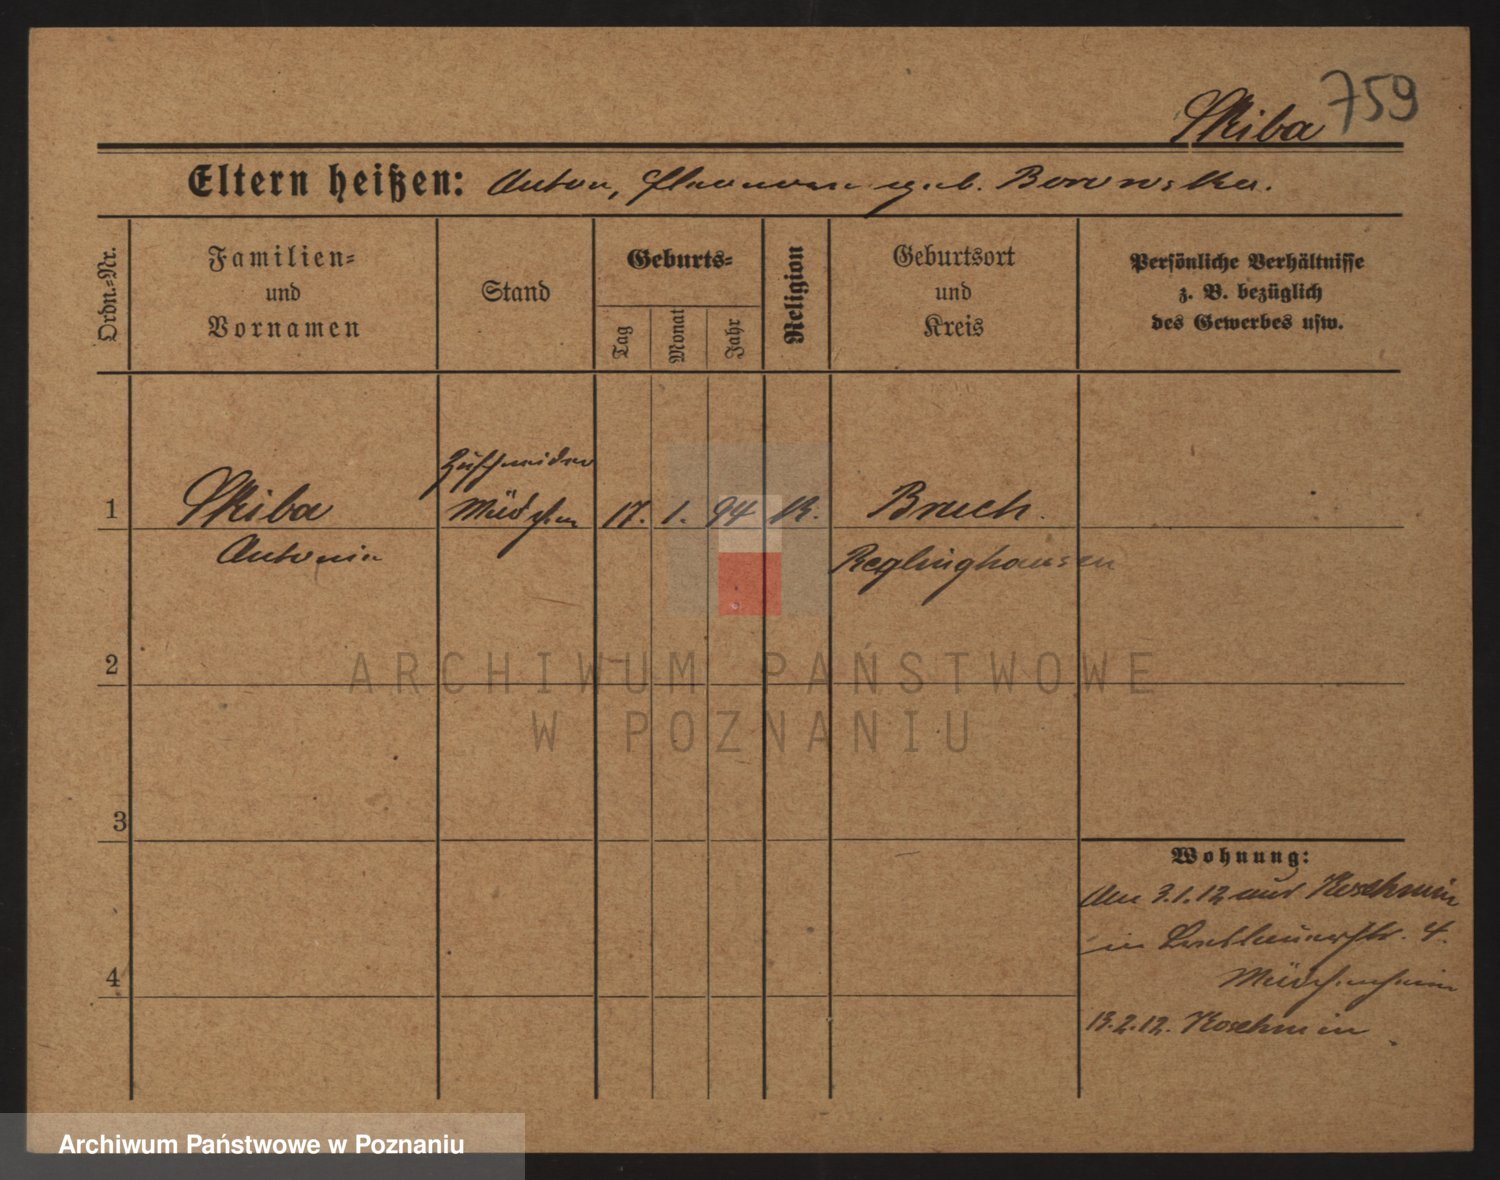 759
Skiba
Eltern heißen: Anton, geb. Borowska.
Ordn.-Nr.
Familien-
und
Vornamen
Stand
Geburts-
Tag
Monat
Jahr
Religion
Geburtsort
und
Kreis
Persönliche Verhältnisse
z. B. bezüglich
des Gewerbes usw.
1
Skiba
Antonia
Mädchen
17. 1. 94 K.
Bruch.
Reglinghausen
2
3
4
Wohnung:
Am 3.1.12 aus Koschmin
in Breslauerstr. 4.
Mädchenheim
13.2.12. Koschmin
ARCHIWUM PAŃSTWOWE
W POZNANIU
Archiwum Państwowe w Poznaniu